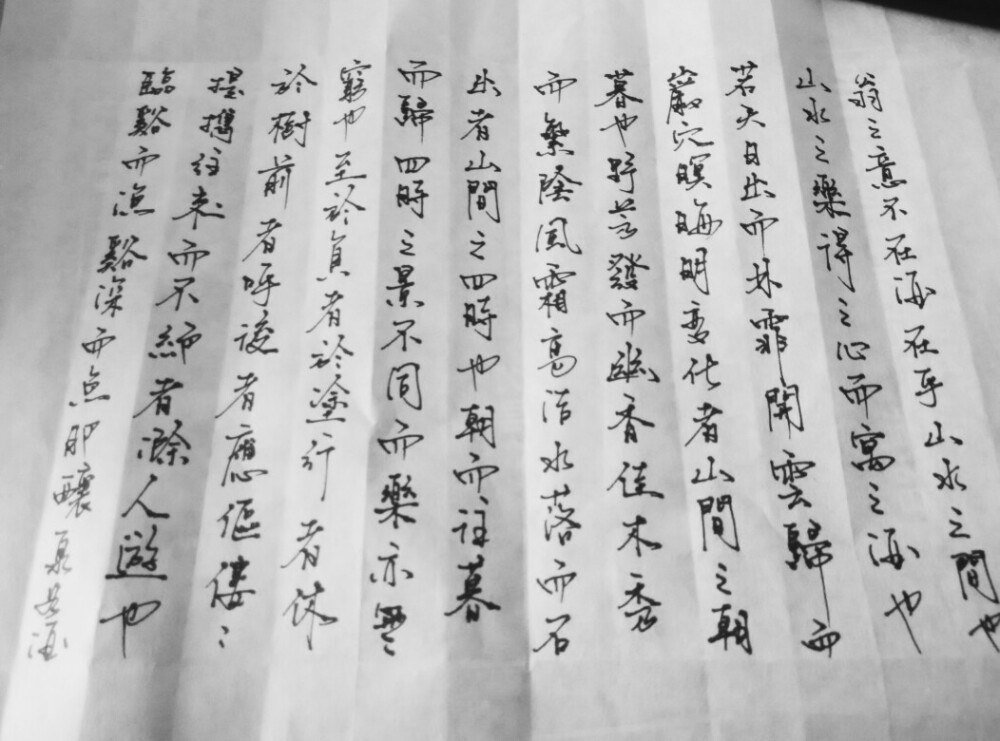 翁之意不在酒在乎山水之間也
山水之樂得之心而寓之酒也
若夫日出而林霏開雲歸而
巖穴暝晦明变化者山間之朝
暮也野芳發而幽香佳木秀
而繁陰風霜高洁水落而石
出者山間之四時也朝而往暮
而歸四時之景不同而樂亦無
窮也至於負者於塗行者休
於樹前者呼後者應傴僂
提攜往来而不絕者滁人遊也
臨谿而漁谿深而魚肥釀泉為酒